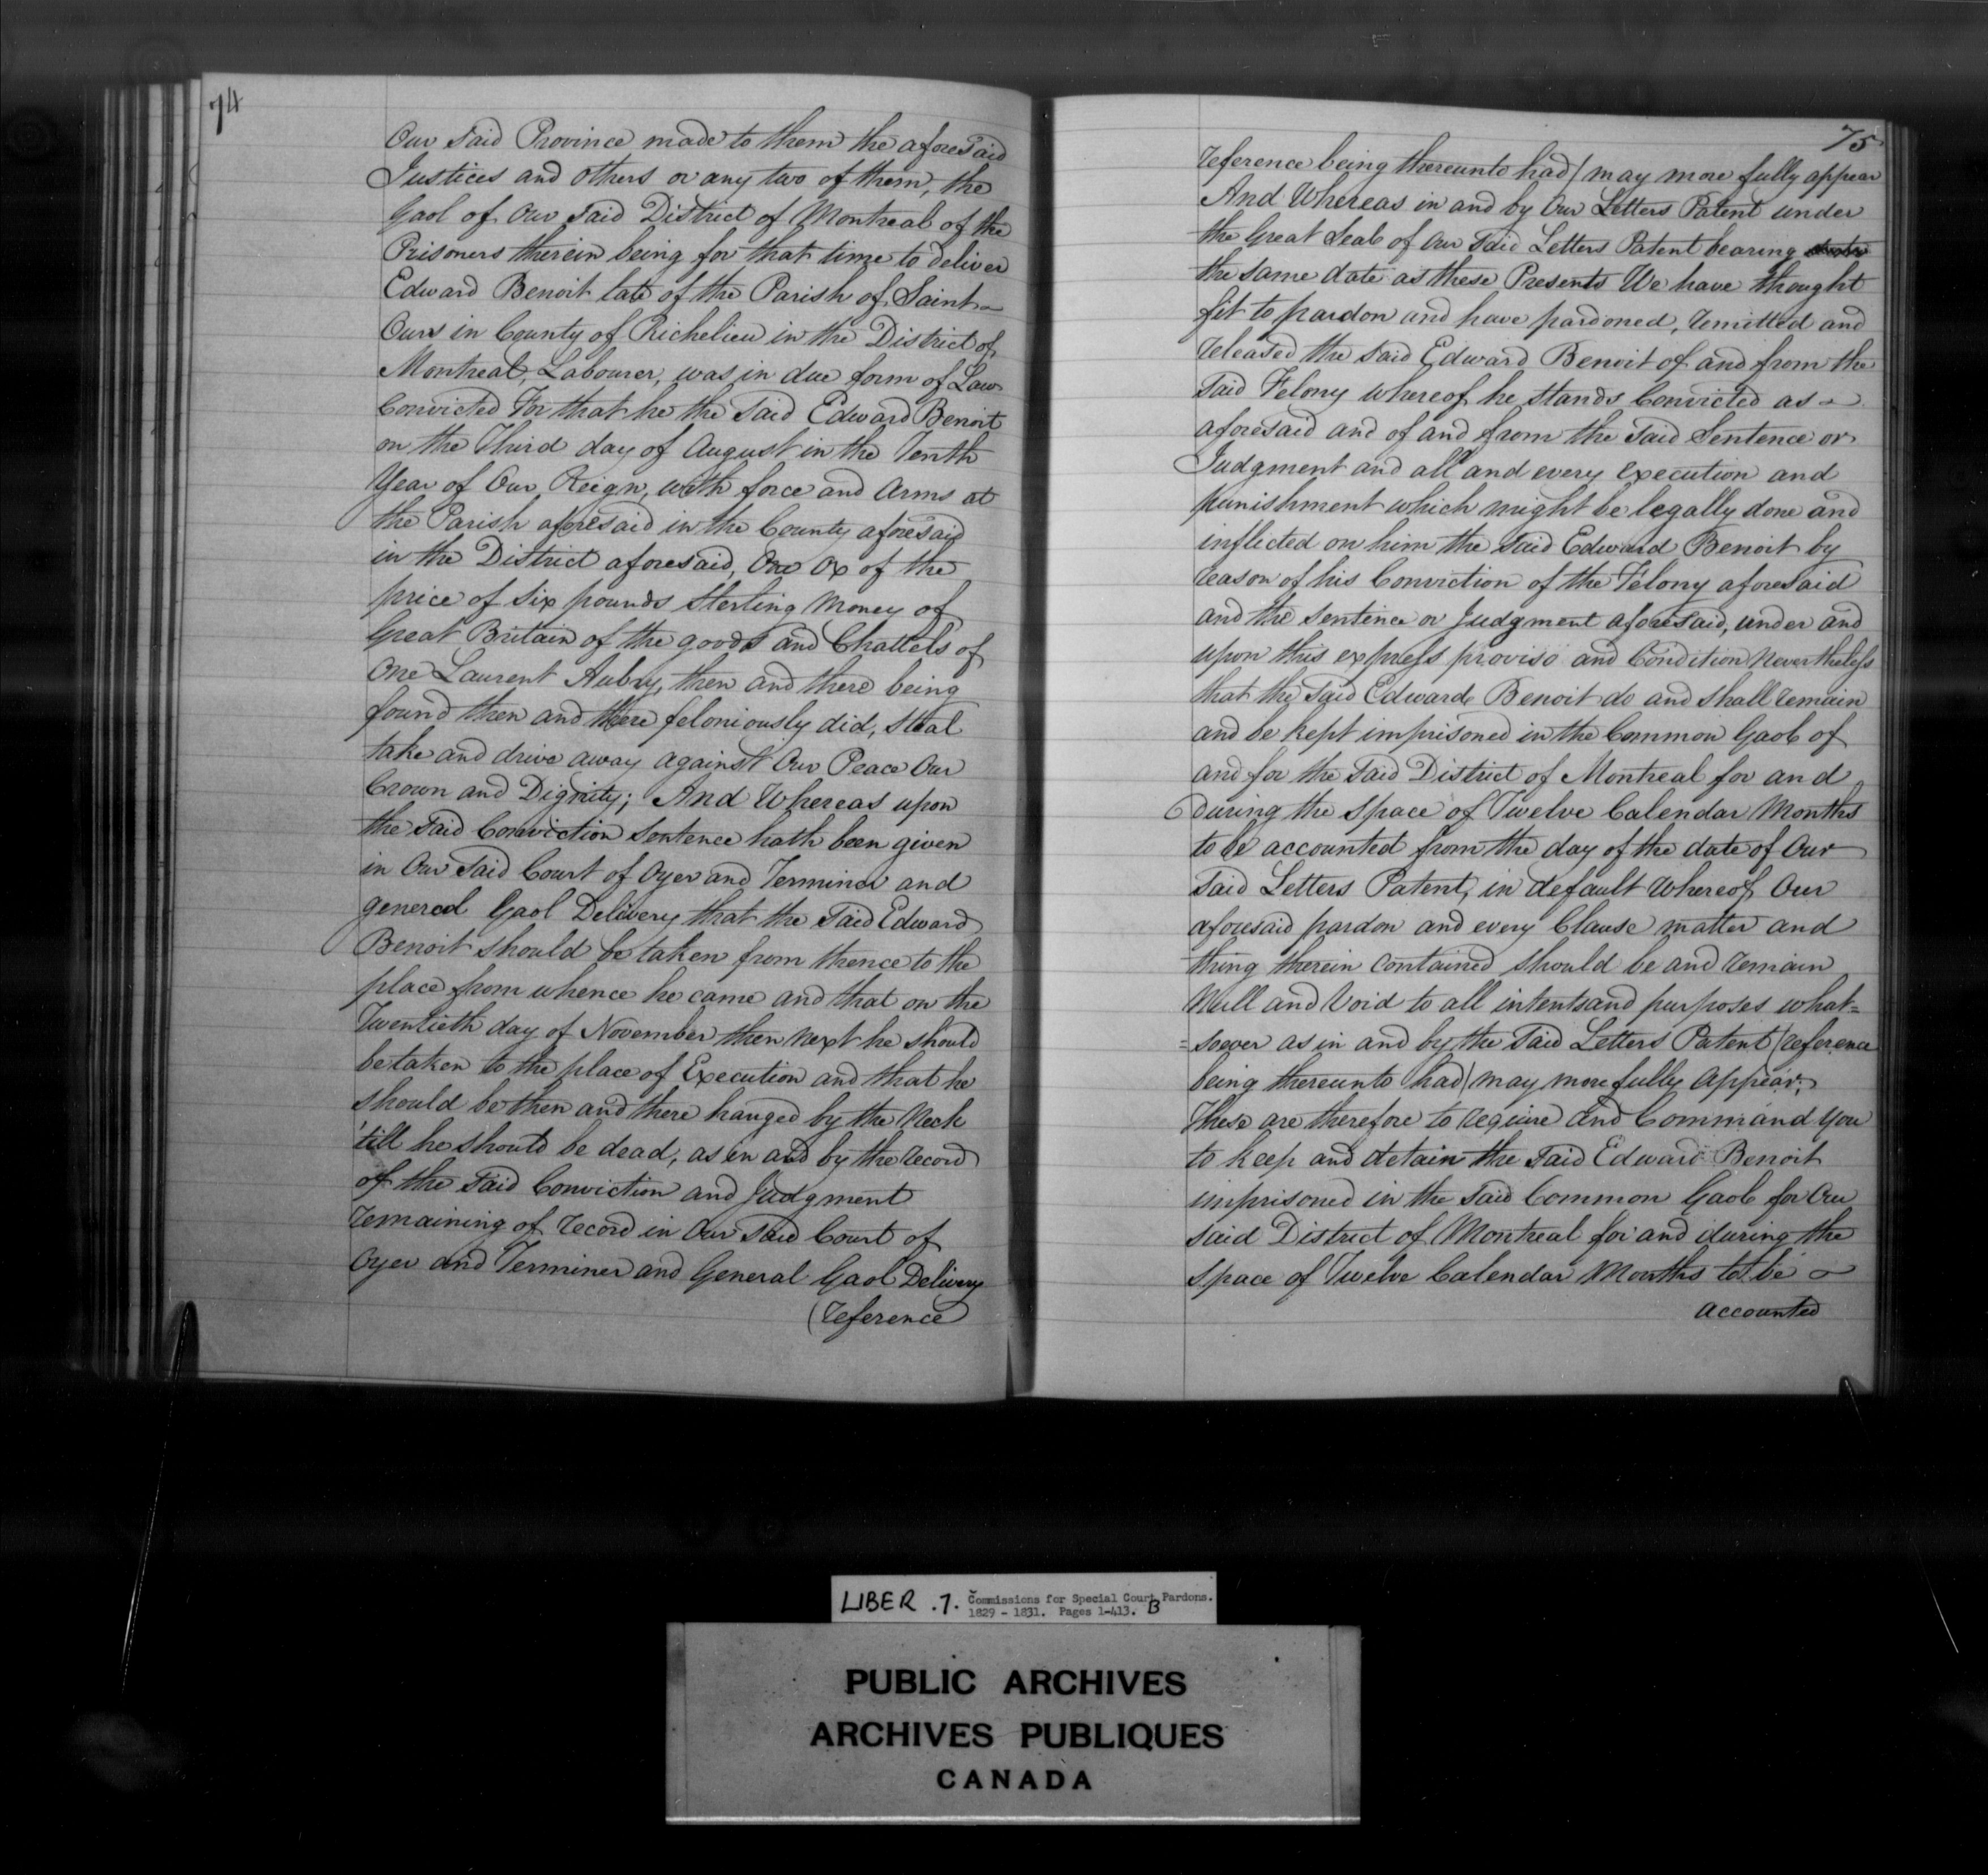 74
Our said Province made to them the aforesaid
Justices and others or any two of them, the
Gaol of Our said District of Montreal of the
Prisoners therein being for that time to deliver
Edward Benoit late of the Parish of Saint
Ours in County of Richelieu in the District of
Montreal, Labourer, was in due form of Law
Convicted For that he the said Edward Benoit
on the Third day of August in the Tenth
Year of Our Reign, with force and Arms at
the Parish aforesaid in the County aforesaid
in the District aforesaid, One Ox of the
price of six pounds Sterling Money of
Great Britain of the goods and Chattels of
one Laurent Aubry, then and there being
found then and there feloniously did, steal
take and drive away against Our Peace Our
Crown and Dignity; And Whereas upon
the said Conviction Sentence hath been given
in Our said Court of Oyer and Terminer and
general Gaol Delivery that the said Edward
Benoit should be taken from thence to the
place from whence he came and that on the
Twentieth day of November then next he should
be taken to the place of Execution and that he
should be then and there hanged by the Neck
'till he should be dead, as in and by the record
of the said Conviction and Judgment
remaining of record in Our said Court of
Oyer and Terminer and General Gaol Delivery
(reference
75
reference being thereunto had) may more fully appear
And Whereas in and by Our Letters Patent under
the Great Seal of Our said Letters Patent bearing
the same date as these Presents We have thought
fit to pardon and have pardoned, remitted and
released the said Edward Benoit of and from the
said Felony whereof he stands Convicted as
aforesaid and of and from the said Sentence or
Judgment and all and every execution and
punishment which might be legally done and
inflicted on him the said Edward Benoit by
reason of his Conviction of the Felony aforesaid
and the sentence or Judgment aforesaid, under and
upon this express proviso and Condition Nevertheless
that the said Edward Benoit do and shall remain
and be kept imprisoned in the Common Gaol of
and for the said District of Montreal for and
During the space of Twelve Calendar Months
to be accounted from the day of the date of Our
said Letters Patent, in default whereof Our
aforesaid pardon and every Clause matter and
thing therein contained should be and remain
Null and Void to all intents and purposes what=
=soever as in and by the said Letters Patent (reference
being thereunto had) may more fully appear;
These are therefore to require and Command you
to keep and detain the said Edward Benoit
imprisoned in the said Common Gaol for Our
said District of Montreal for and during the
space of Twelve Calendar Months to be
accounted
LIBER .7. Commissions for Special Court Pardons.
1829 - 1831. Pages 1-413. B
PUBLIC ARCHIVES
ARCHIVES PUBLIQUES
CANADA